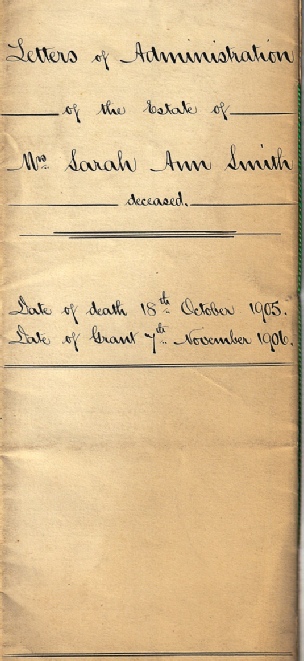 Letters of Administration
of the Estate of
Mrs Sarah Ann Smith
deceased.
Date of death 18th October 1905.
Date of Grant 7th November 1906.